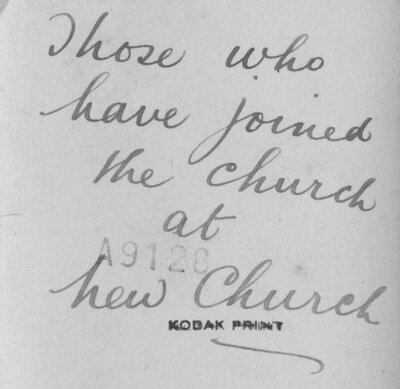 Those who
have joined
the church
at
A9128
new Church
KODAK PRINT